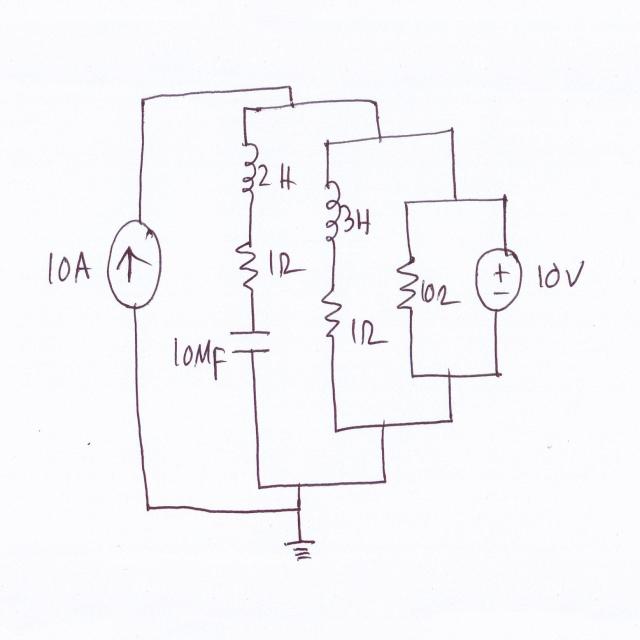 10A
2H
1Ω
10MF
3H
1Ω
10Ω
10V